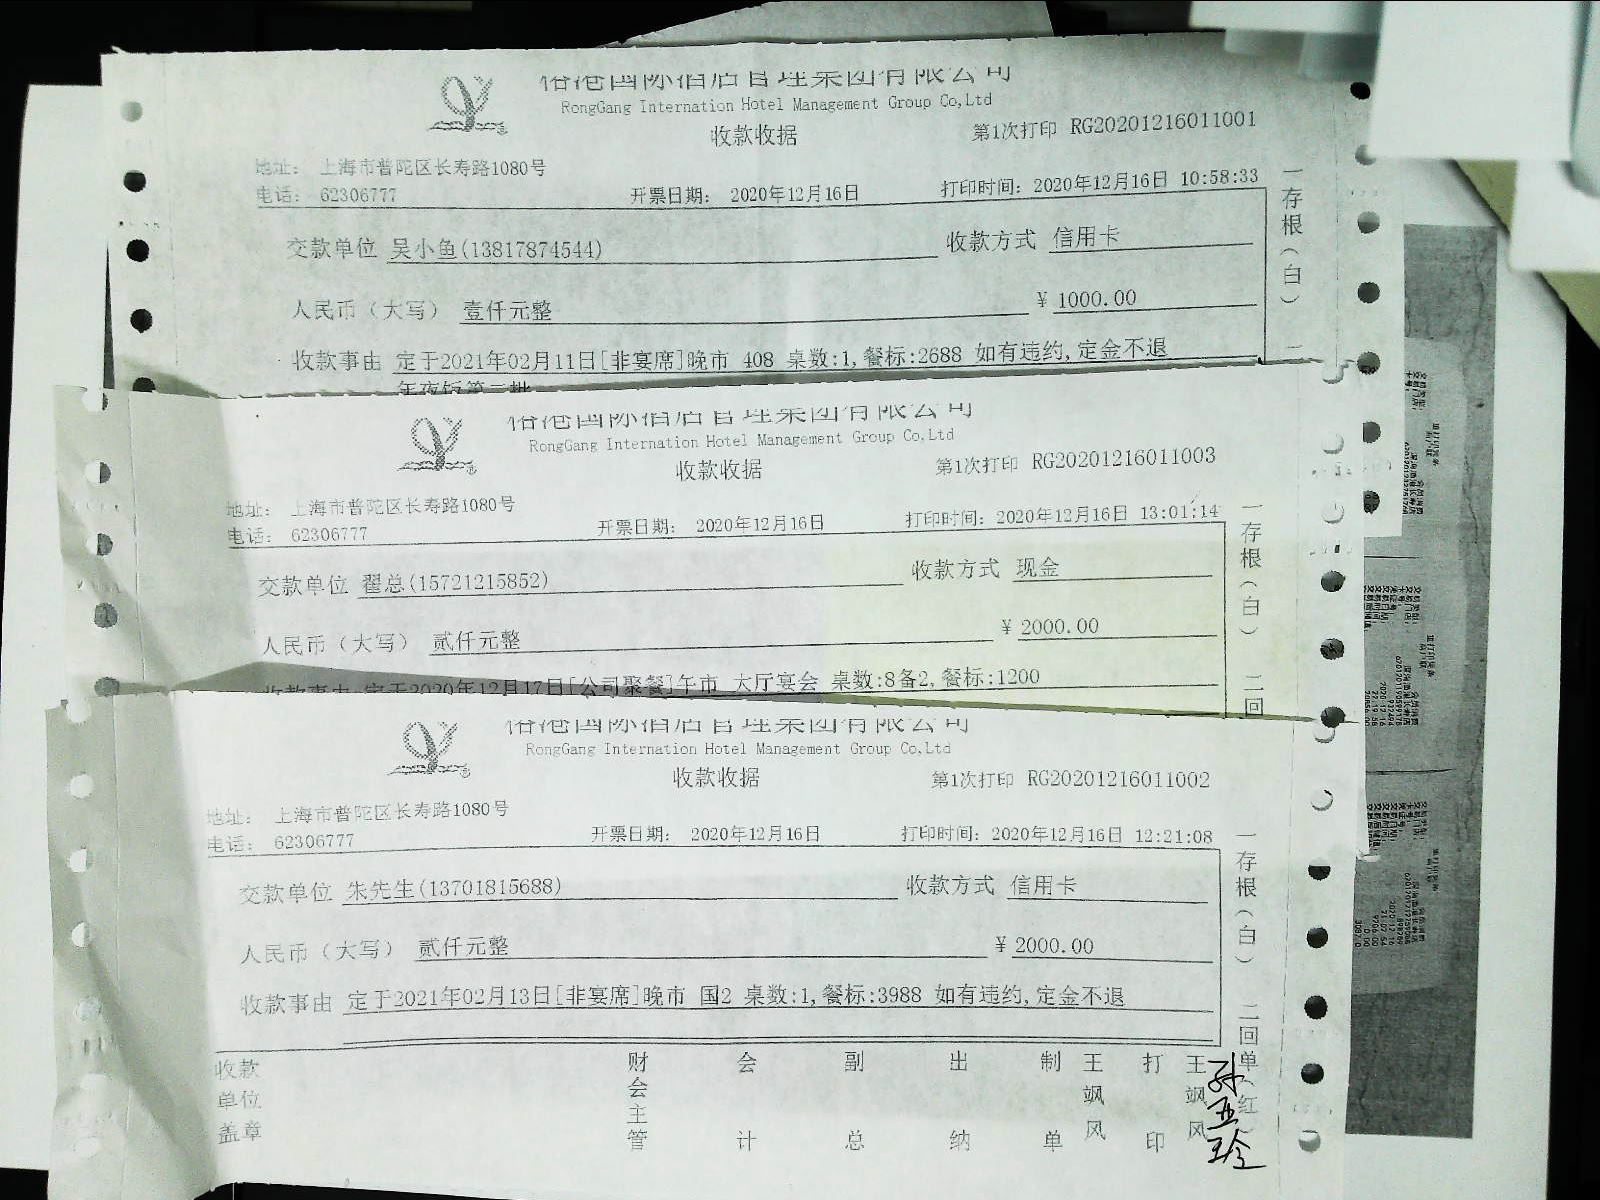 国际酒店管理集团有限公司
RongGang Internation Hotel Management Group Co,Ltd
收款收据
第1次打印 RG20201216011001
地址： 上海市普陀区长寿路1080号
电话： 62306777
开票日期： 2020年12月16日
打印时间：2020年12月16日 10:58:33
交款单位 吴小鱼(13817874544)
收款方式 信用卡
人民币（大写） 壹仟元整
¥ 1000.00
收款事由 定于2021年02月11日[非宴席]晚市 408 桌数:1,餐标:2688 如有违约,定金不退
年夜饭第二批
一存根(白) 二
国际酒店管理集团有限公司
RongGang Internation Hotel Management Group Co,Ltd
收款收据
第1次打印 RG20201216011003
地址： 上海市普陀区长寿路1080号
电话： 62306777
开票日期： 2020年12月16日
打印时间：2020年12月16日 13:01:14
交款单位 翟总(15721215852)
收款方式 现金
人民币（大写） 贰仟元整
¥ 2000.00
收款事由 定于2020年12月17日[公司聚餐]午市 大厅宴会 桌数:8备2,餐标:1200
一存根(白) 二回
国际酒店管理集团有限公司
RongGang Internation Hotel Management Group Co,Ltd
收款收据
第1次打印 RG20201216011002
地址： 上海市普陀区长寿路1080号
电话： 62306777
开票日期： 2020年12月16日
打印时间：2020年12月16日 12:21:08
交款单位 朱先生(13701815688)
收款方式 信用卡
人民币（大写） 贰仟元整
¥ 2000.00
收款事由 定于2021年02月13日[非宴席]晚市 国2 桌数:1,餐标:3988 如有违约,定金不退
一存根(白) 二回单(红)
收款单位盖章
财会主管
会计
副总
出纳
制单
王飒风
打印
王飒风
孙亚玲